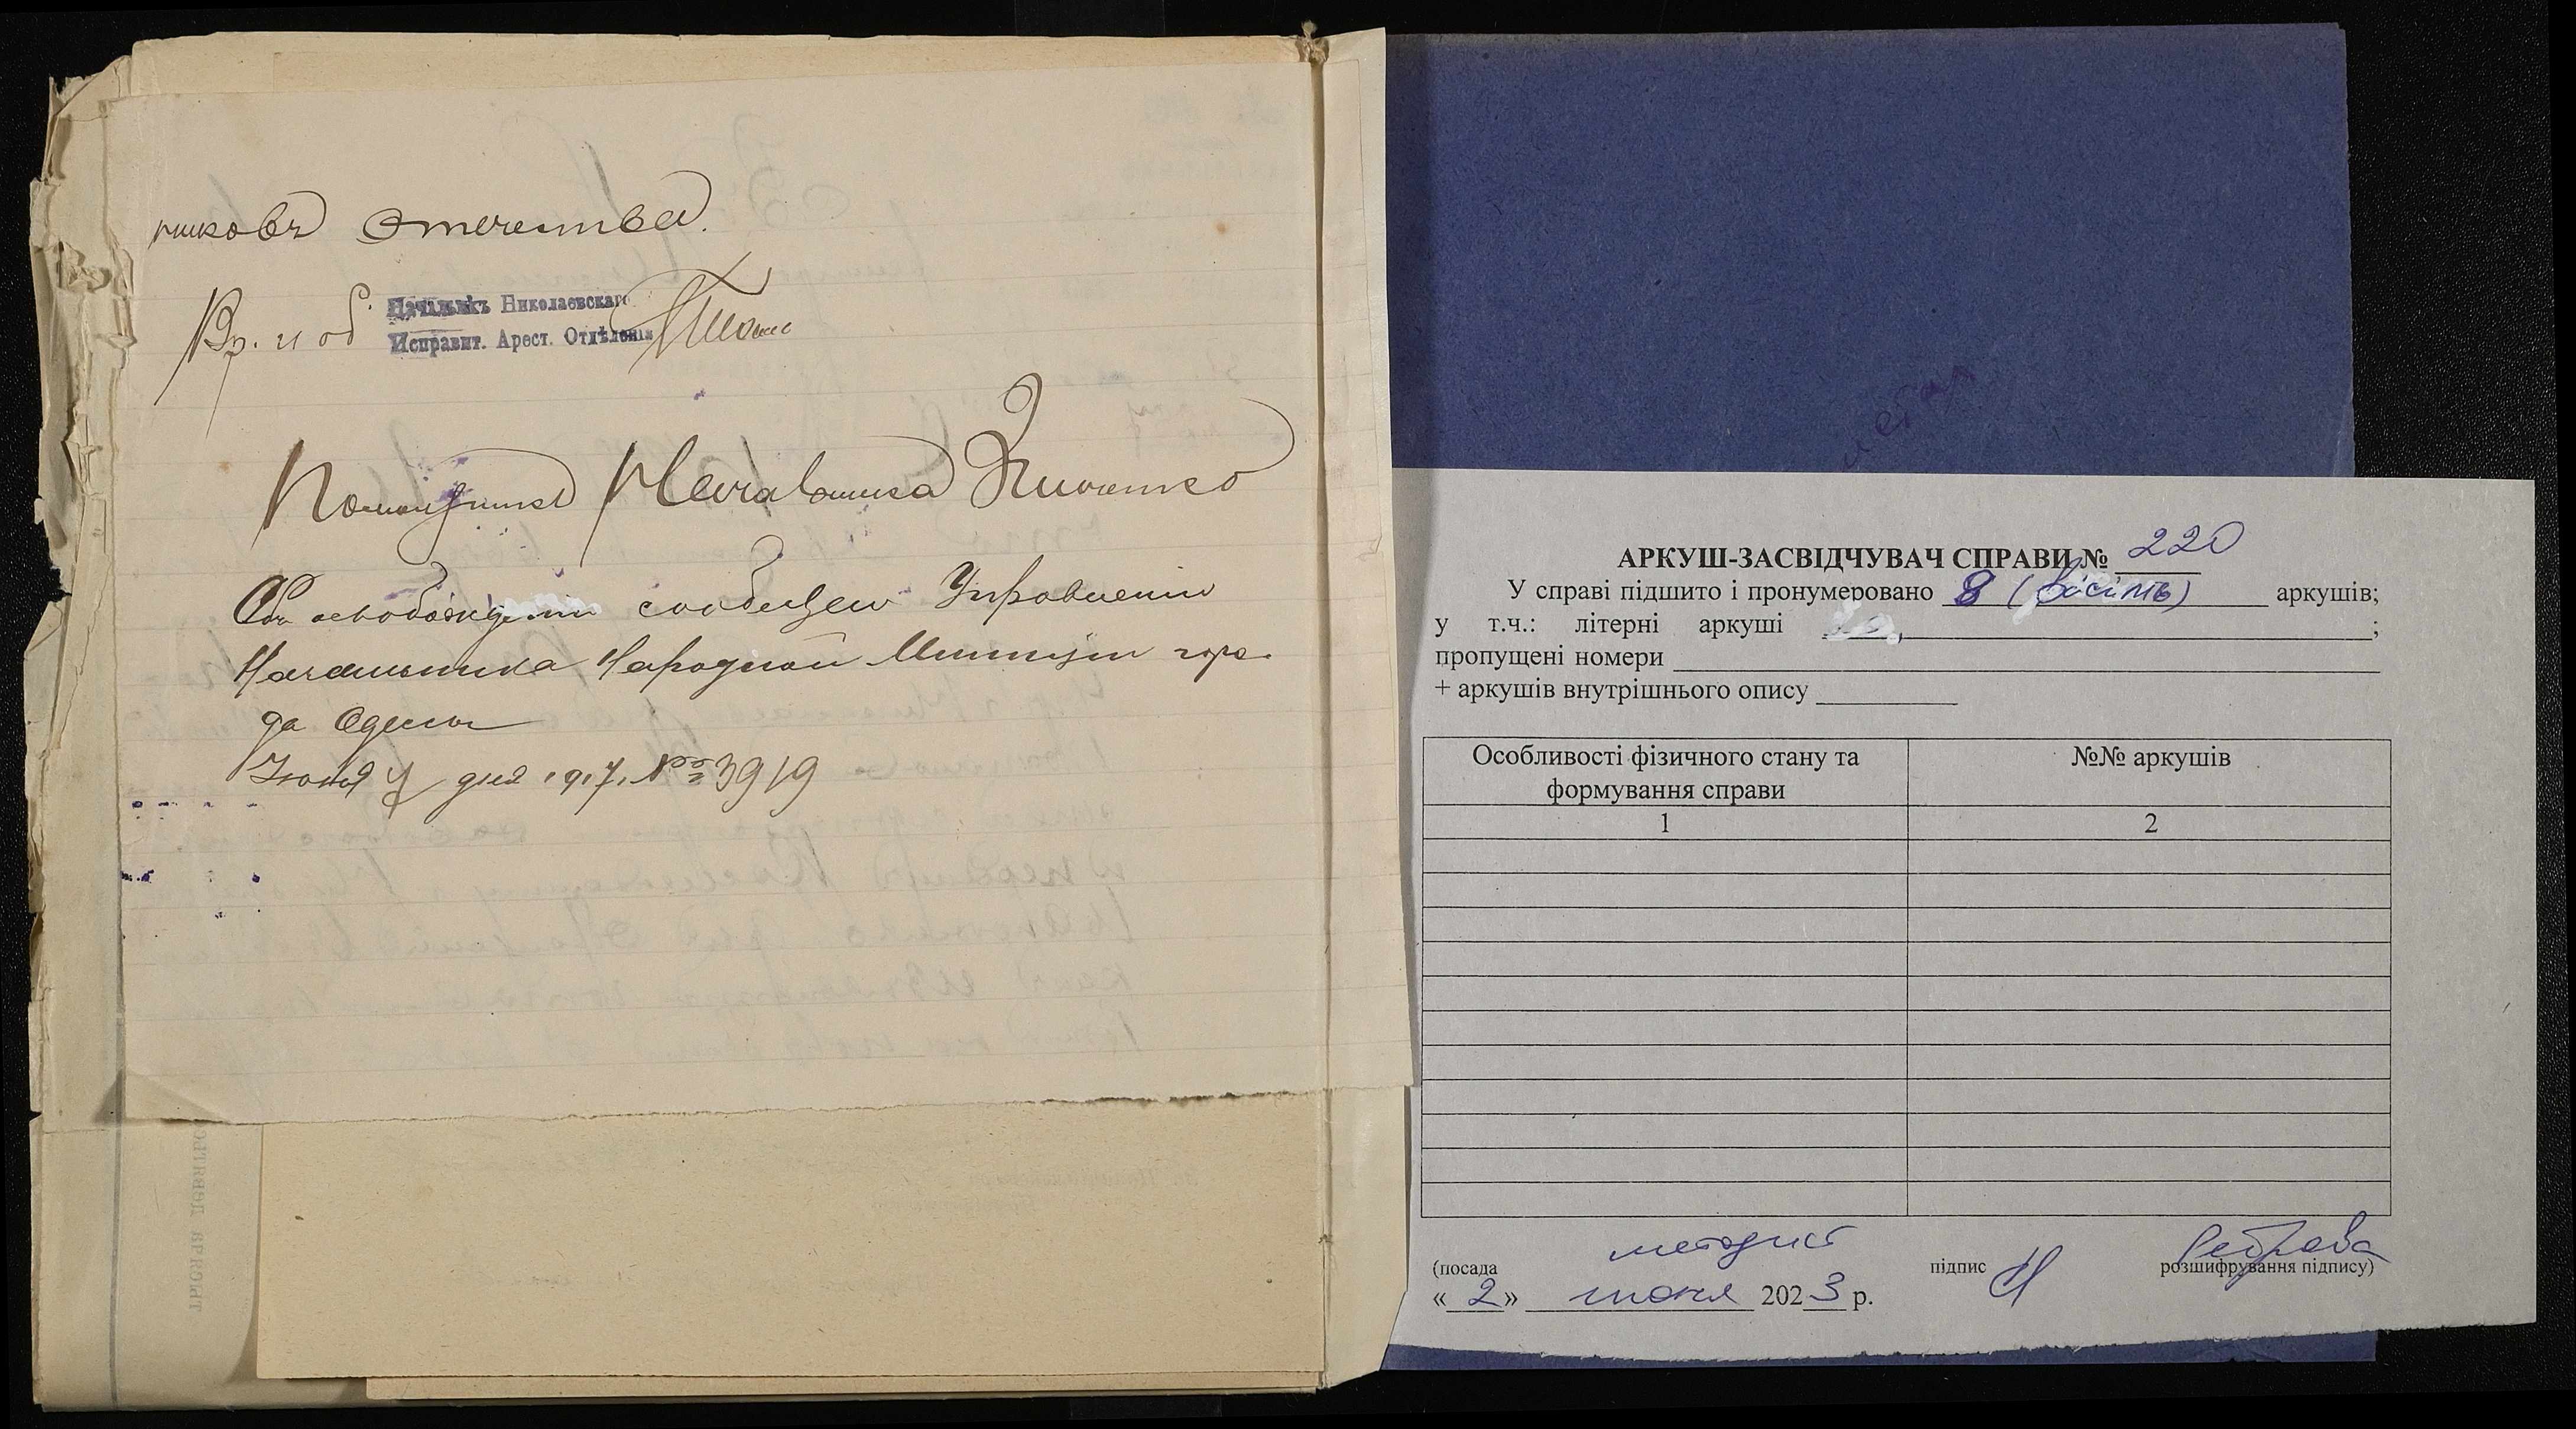 никовъ Отечества.
Вр. и об. Начальникъ Николаевскаго
Исправит. Арест. Отдѣленія
Помощникъ Начальника Зинченко
Объ освобожденіи сообщено Управленію
Начальника Народной Милиціи горо-
да Одессы
Іюня 4 дня 1917. № 3919
АРКУШ-ЗАСВІДЧУВАЧ СПРАВИ № 220
У справі підшито і пронумеровано 8 (вісімь) аркушів;
у т.ч.: літерні аркуші ;
пропущені номери
+ аркушів внутрішнього опису
Особливості фізичного стану та
формування справи
№№ аркушів
1 2
методист
(посада підпис розшифрування підпису)
« 2 » июня 2023 р.